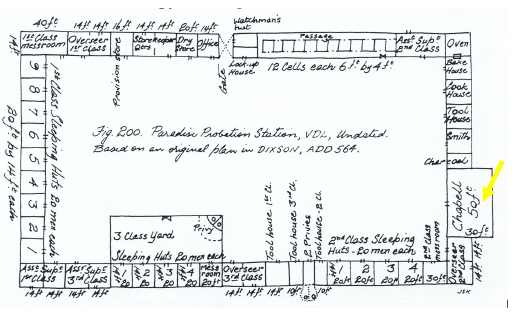 Watchman's
hut
40ft 14ft 14ft 16ft 14ft 14ft 20ft 14ft
1st Class
messroom
Overseer
1st Class
Provision store
Storekeeper
Qtrs
Dry
Store
Office
Gate
Lock-up
House
Passage
12 Cells each 6ft by 4ft
Asst Supt
2nd Class
Oven
Bake
House
Cook
House
Tool
House
Smith
Charcoal
Chapell
50ft
30ft
14ft
9
8
7
6
5
4
3
2
1
20ft by 14ft each
1st Class Sleeping Huts 20 men each
Fig. 200. Paradise Probation Station, VDL, Undated.
Based on an original plan in DIXSON, ADD 564.
3 Class Yard
Privy
Sleeping Huts 20 men each
Tool house 1st Cl.
Tool house 3rd Cl.
2 Privies
Toolhouse - 2 Cl.
2nd Class Sleeping
Huts - 20 men each
2nd Class
messroom
Overseer
2nd Class
14ft 14ft
Asst Supt
1st Class
Asst Supt
3rd Class
Hut 1
20
2
20
3
20
4
20
Mess
room
20ft
Overseer
3rd Class
Hut 1
20ft
2
20ft
3
20ft
4
20ft
30ft
14ft 14ft 14ft 14ft
14ft 14ft 14ft 10ft 10ft